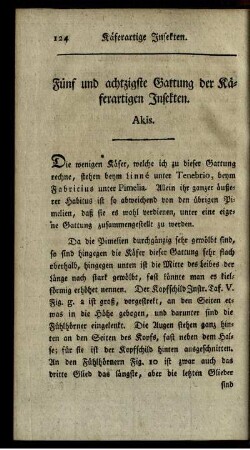 124 Käferartige Insekten.
Fünf und achtzigste Gattung der Kä-
ferartigen Insekten.
Akis.
Die wenigen Käfer, welche ich zu dieser Gattung
rechne, stehen beym Linné unter Tenebrio, beym
Fabricius unter Pimelia. Allein ihr ganzer äuße-
rer Habitus ist so abweichend von den übrigen Pi-
melien, daß sie es wohl verdienen, unter eine eige-
ne Gattung zusammengestellt zu werden.
Da die Pimelien durchgängig sehr gewölbt sind,
so sind hingegen die Käfer dieser Gattung sehr flach
oberhalb, hingegen unten ist die Mitte des Leibes der
Länge nach stark gewölbt, fast könnte man es kiel-
förmig erhöhet nennen. Der Kopfschild Instr. Taf. V.
Fig. 9. 2 ist groß, vorgestreckt, an den Seiten et-
was in die Höhe gebogen, und darunter sind die
Fühlhörner eingelenkt. Die Augen stehen ganz hin-
ten an den Seiten des Kopfs, fast neben dem Hal-
se; für sie ist der Kopfschild hinten ausgeschnitten.
An den Fühlhörnern Fig. 10 ist zwar auch das
dritte Glied das längste, aber die letzten Glieder
sind